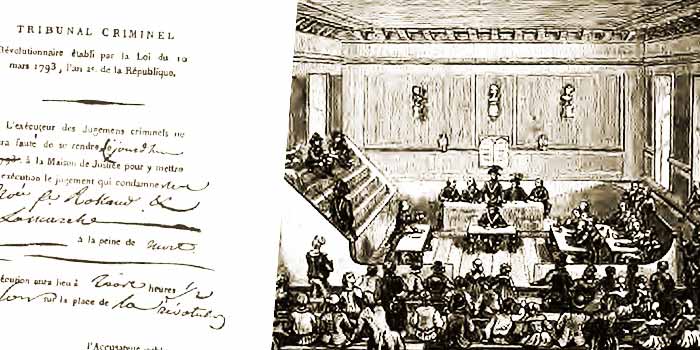 TRIBUNAL CRIMINEL
Révolutionnaire établi par la Loi du 10
mars 1793, l'an 2e. de la République.
L'exécuteur des Jugemens criminels ne
ra faute de se rendre cejourd'hui
à la Maison de Justice pour y mettre
exécution le jugement qui condamne
Rolland &
Lamarche
à la peine de mort
écution aura lieu à heures 1/2
sur la place de la révolution
l'Accusateur